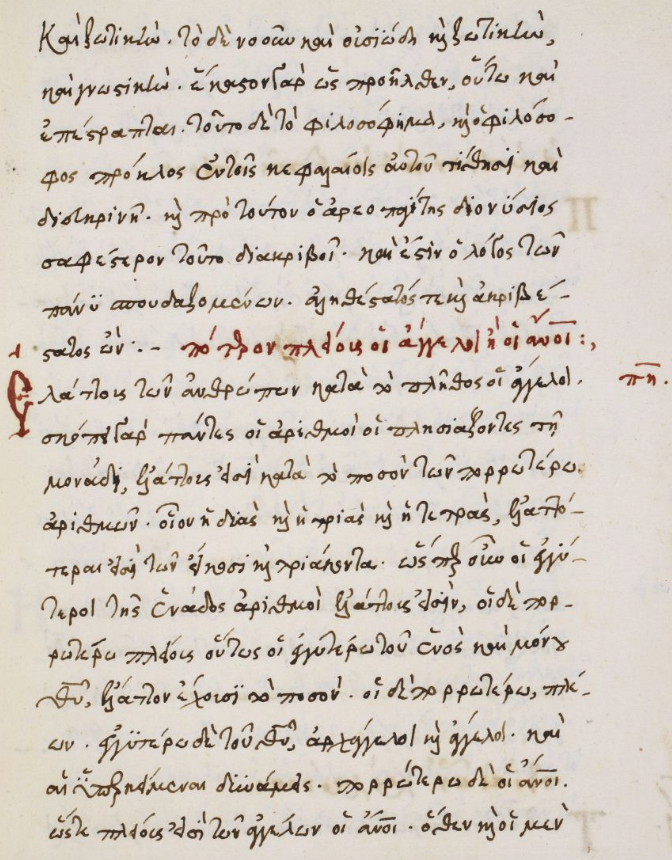 καὶ ζωτικῶ. τὸ δὲ νοοῦν καὶ οὐσιώδη κ̀ ζωτικῶ,
καὶ γνωστικῶ. ἕκαστον γὰρ ὡς προῆλθεν, οὕτω καὶ
ἐπέστραπται. τοῦτο δὲ τὸ φιλοσόφημα, κ̀ ὁ φιλόσο-
φος πρόκλος ἐν τοῖς κεφαλαίοις αὐτοῦ τίθησι καὶ
διευκρινῆ. κ̀ πρὸ τούτου ὁ ἀρεοπαγίτης διονύσιος
σαφέστερον τοῦτο διακριβοῖ. καὶ ἔστιν ὁ λόγος τῶν
πάνυ σπουδαζομένων. ἀληθέστατός τε κ̀ ἀκριβέ-
στατος ὤν:- πότερον πλείους οἱ ἄγγελοι ἢ οἱ ἄνοι:,
Ἐλάττους τῶν ἀνθρώπων κατὰ τὸ πλῆθος οἱ ἄγγελοι. πη.
σκόπει γὰρ πάντες οἱ ἀριθμοὶ οἱ πλησιάζοντες τῆ
μονάδι, ἐλάττους εἰσὶ κατὰ τὸ ποσὸν τῶν πορρωτέρω
ἀριθμῶν. οἷον ἡ δυὰς κ̀ ἡ τριὰς κ̀ ἡ τετρὰς, ἐλαττό-
τεραι εἰσὶ τῶν εἴκοσι κ̀ τριάκοντα. ὥσπερ οὖν οἱ ἐγγύ-
τεροι τῆς ἑνάδος ἀριθμοὶ ἐλάττους εἰσὶν, οἱ δὲ πορ-
ρωτέρω πλείους οὕτως οἱ ἐγγυτέρω τοῦ ἑνὸς καὶ μόνου
θυ, ἔλαττον ἔχουσι τὸ ποσόν. οἱ δὲ πορρωτέρω, πλέ-
ων. ἐγγυτέρω δὲ τοῦ θυ, ἀρχάγγελοι κ̀ ἄγγελοι. καὶ
αἱ ὑπεζηγμέναι δυνάμεις. πορρώτερω δὲ οἱ ἄνοι.
ὥστε πλείους εἰσὶ τῶν ἀγγέλων οἱ ἄνοι. ὅθεν κ̀ οἱ μὲν